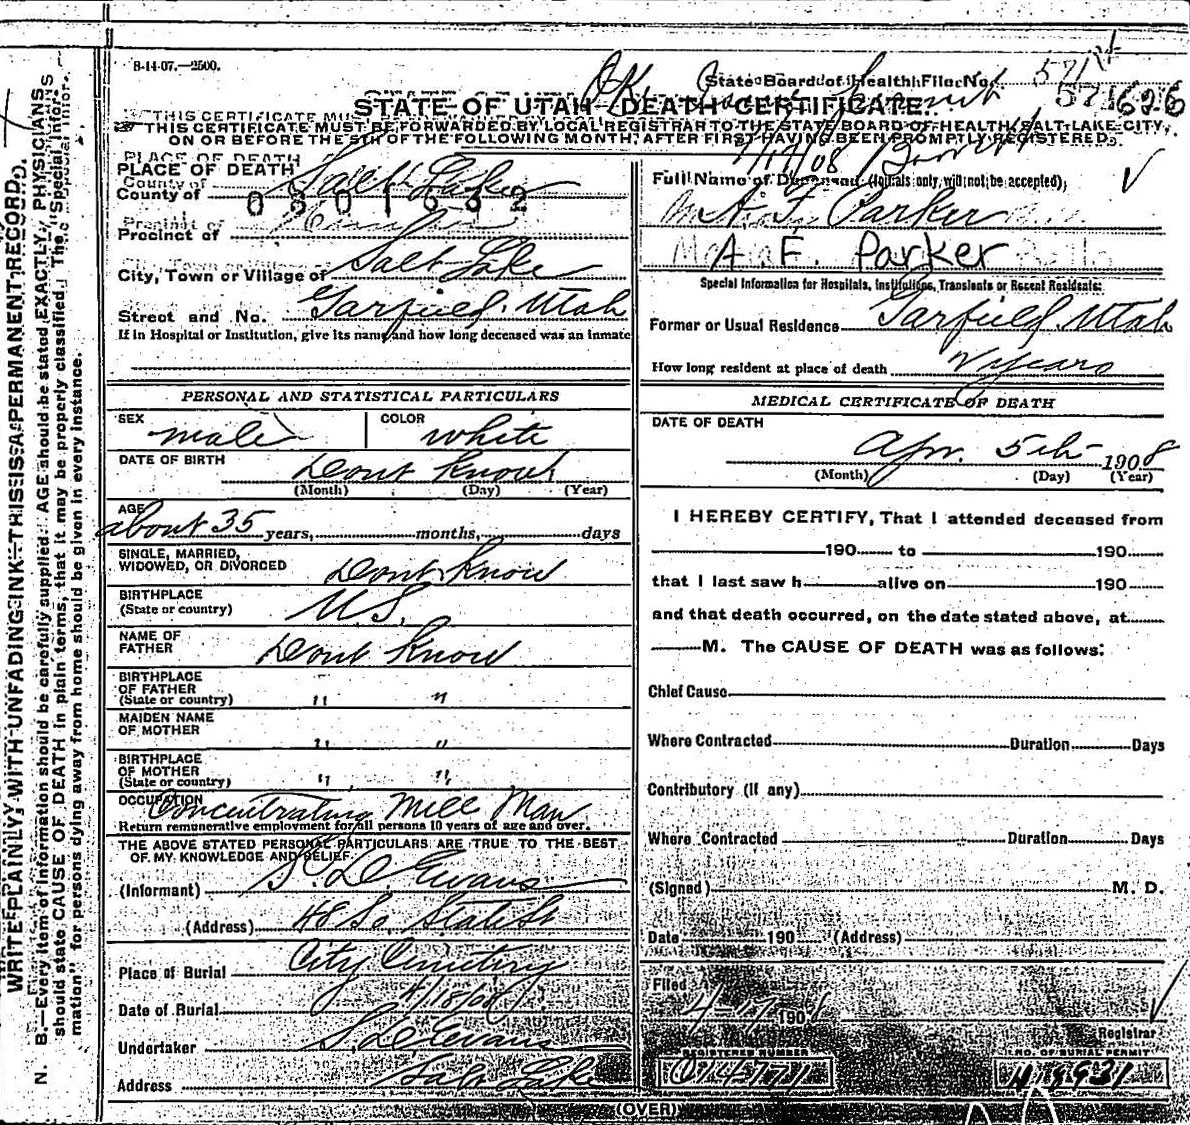 8-14-07.—2500.
State Board of Health File No. 571
571626
STATE OF UTAH—DEATH CERTIFICATE.
THIS CERTIFICATE MUST BE FORWARDED BY LOCAL REGISTRAR TO THE STATE BOARD OF HEALTH, SALT LAKE CITY,
ON OR BEFORE THE 5TH OF THE FOLLOWING MONTH, AFTER FIRST HAVING BEEN PROMPTLY REGISTERED.
PLACE OF DEATH
County of Salt Lake
0801692
Precinct of
City, Town or Village of Salt Lake
Street and No. Garfield, Utah
If in Hospital or Institution, give its name, and how long deceased was an inmate
PERSONAL AND STATISTICAL PARTICULARS
SEX male COLOR white
DATE OF BIRTH Dont Know
(Month) (Day) (Year)
AGE about 35 years, months, days
SINGLE, MARRIED,
WIDOWED, OR DIVORCED Dont Know
BIRTHPLACE
(State or country) U.S.
NAME OF
FATHER Dont Know
BIRTHPLACE
OF FATHER
(State or country) " "
MAIDEN NAME
OF MOTHER " "
BIRTHPLACE
OF MOTHER
(State or country) " "
OCCUPATION Concentrating Mill Man
Return remunerative employment for all persons 10 years of age and over.
THE ABOVE STATED PERSONAL PARTICULARS ARE TRUE TO THE BEST
OF MY KNOWLEDGE AND BELIEF.
(Informant) S. D. Evans
(Address) 48 So. State St
Place of Burial City Cemetery
Date of Burial 4/18/08
Undertaker S. D. Evans
Address Salt Lake
Full Name of Deceased (Initials only, will not be accepted),
A. F. Parker
A. F. Parker
Special Information for Hospitals, Institutions, Transients or Recent Residents:
Former or Usual Residence Garfield, Utah
How long resident at place of death years
MEDICAL CERTIFICATE OF DEATH
DATE OF DEATH
Apr. 5th 1908
(Month) (Day) (Year)
I HEREBY CERTIFY, That I attended deceased from
190 to 190
that I last saw h alive on 190
and that death occurred, on the date stated above, at
M. The CAUSE OF DEATH was as follows:
Chief Cause
Where Contracted Duration Days
Contributory (if any)
Where Contracted Duration Days
(Signed) M. D.
Date 190 (Address)
Filed
4-17 190
Registrar
REGISTERED NUMBER
NO. OF BURIAL PERMIT
(OVER)
WRITE PLAINLY, WITH UNFADING INK—THIS IS A PERMANENT RECORD.
N. B.—Every item of information should be carefully supplied. AGE should be stated EXACTLY, PHYSICIANS
should state CAUSE OF DEATH in plain terms, that it may be properly classified. The "Special Infor-
mation" for persons dying away from home should be given in every instance.